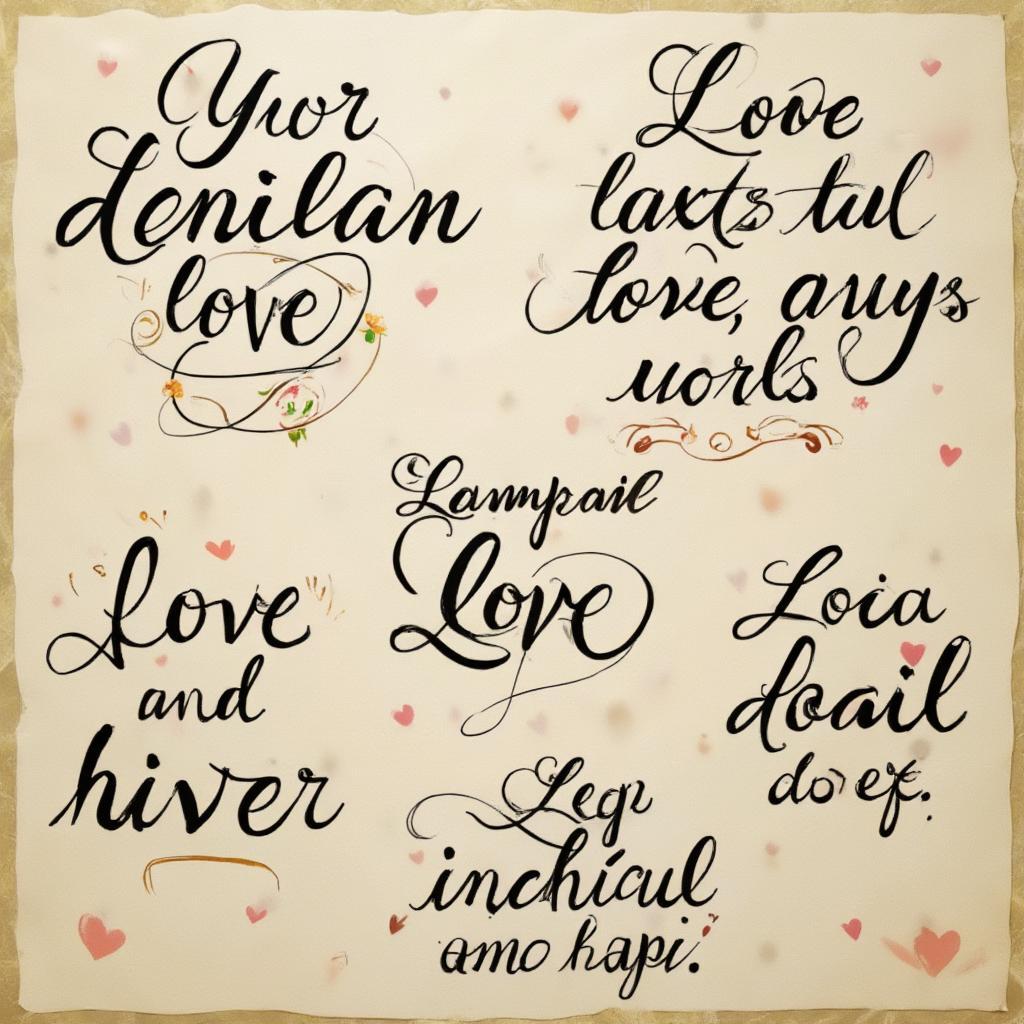 Yuor
denilan
love
Love
laxts tul
love, auys
uorls
Lammpail
Love
Love
and
hiver
Loia
doail
do ef.
Legr
inchícul
amo hapi.